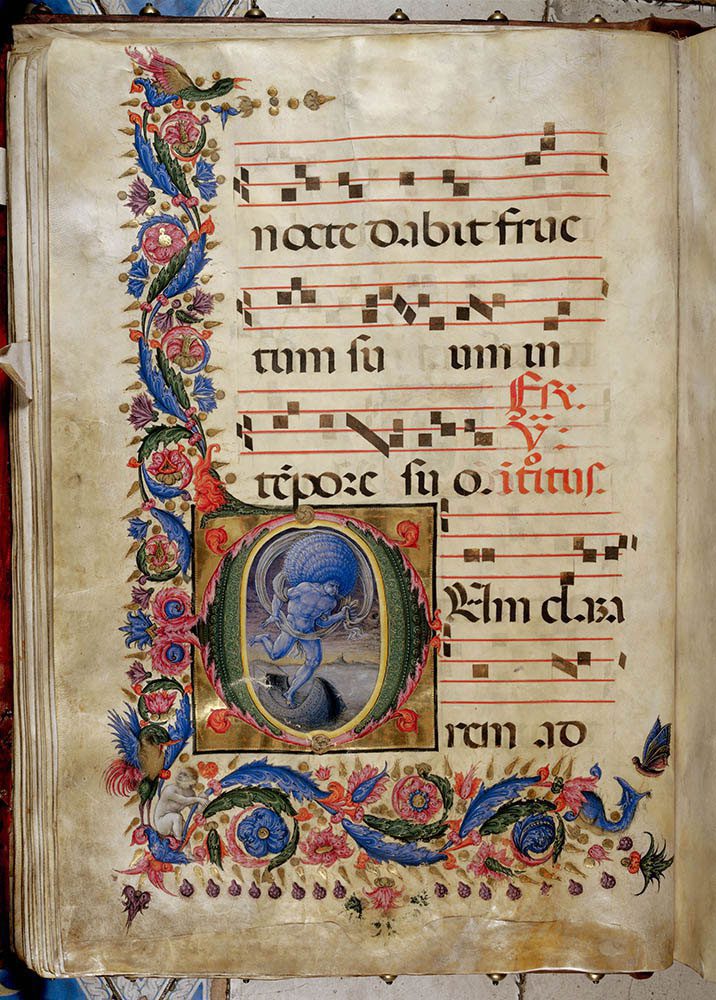 nocte dabit fruc
tum su um in
FR.
V:
tēpore su o. itoitus.
DUm clama
rem ad